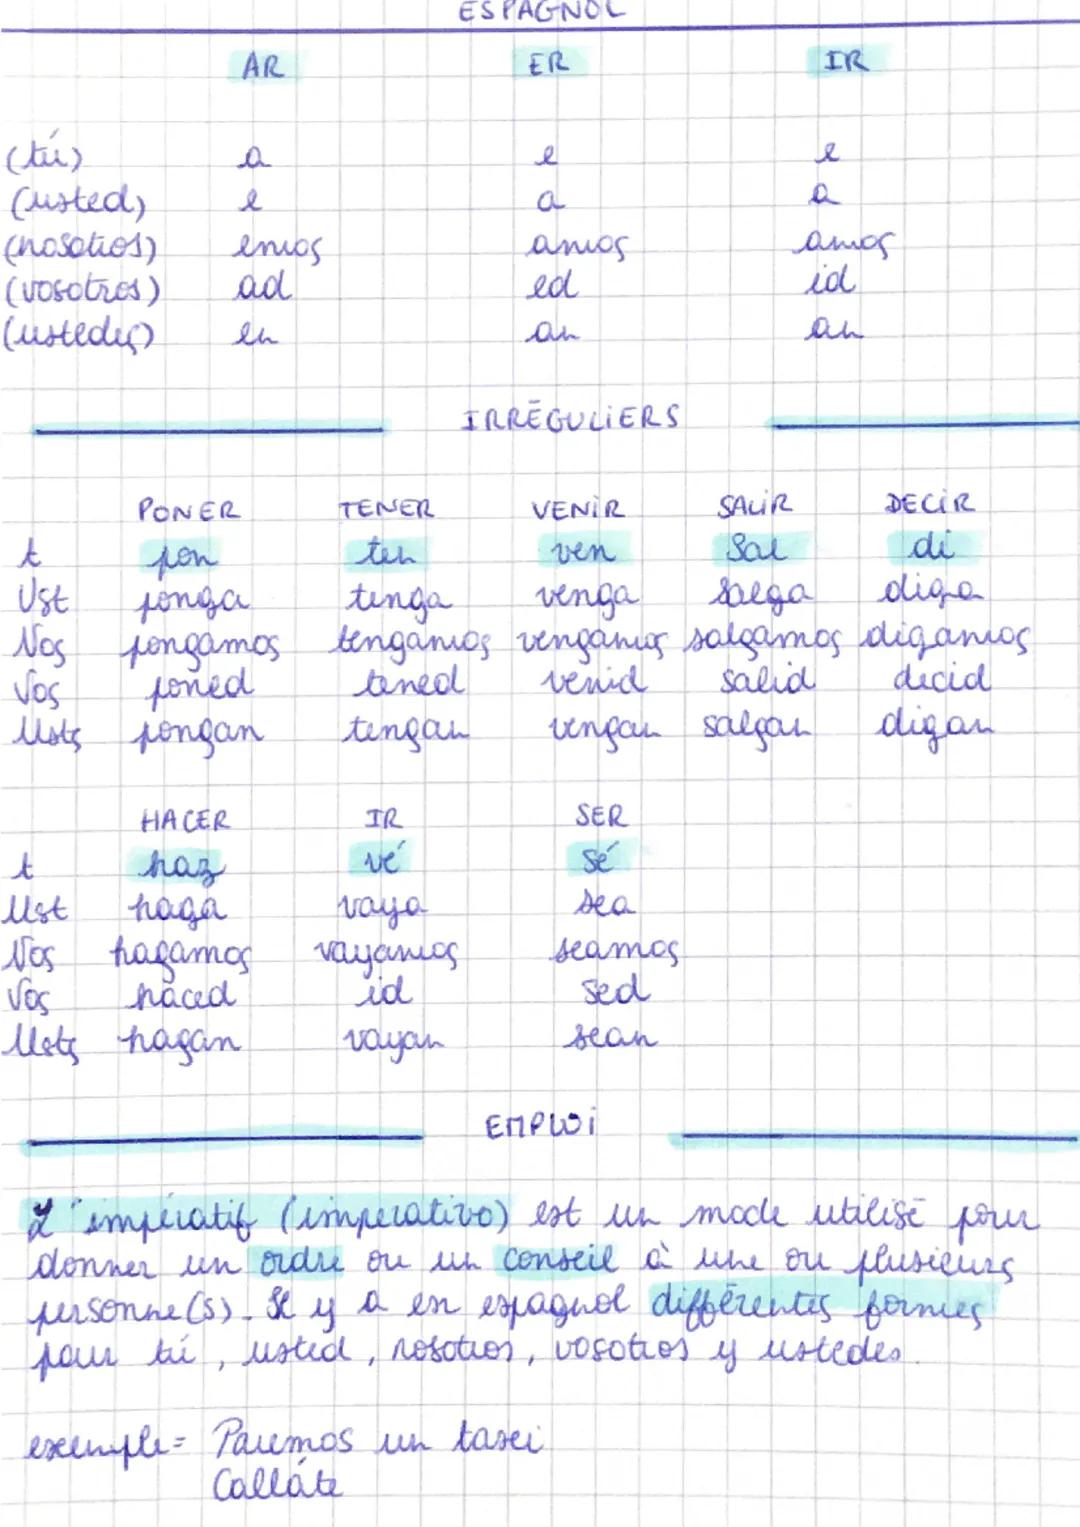 ESPAGNOL
AR ER IR
(tú) a e e
(usted) e a a
(nosotros) emos amos amos
(vosotros) ad ed id
(ustedes) en an an
IRRÉGULIERS
PONER TENER VENIR SALIR DECIR
t pon ten ven Sal di
Ust ponga tenga venga salga diga
Nos pongamos tengamos vengamos salgamos digamos
Vos poned tened venid salid decid
Usts pongan tengan vengan salgan digan
HACER IR SER
t haz vé sé
Ust haga vaya sea
Nos hagamos vayamos seamos
Vos haced id sed
Usts hagan vayan sean
EMPLOI
L'impératif (imperativo) est un mode utilisé pour
donner un ordre ou un conseil à une ou plusieurs
personne(s). Il y a en espagnol différentes formes
pour tú, usted, nosotros, vosotros y ustedes.
exemple= Paremos un taxi
Calláte